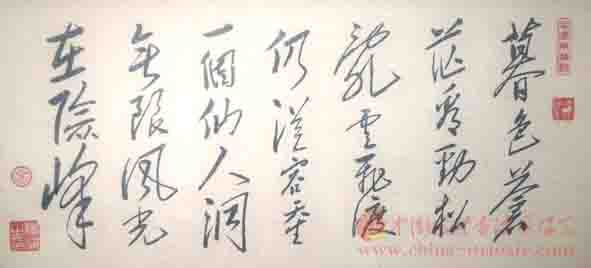 暮色蒼
茫看勁松
亂雲飛渡
仍從容天生
一個仙人洞
無限風光
在險峰